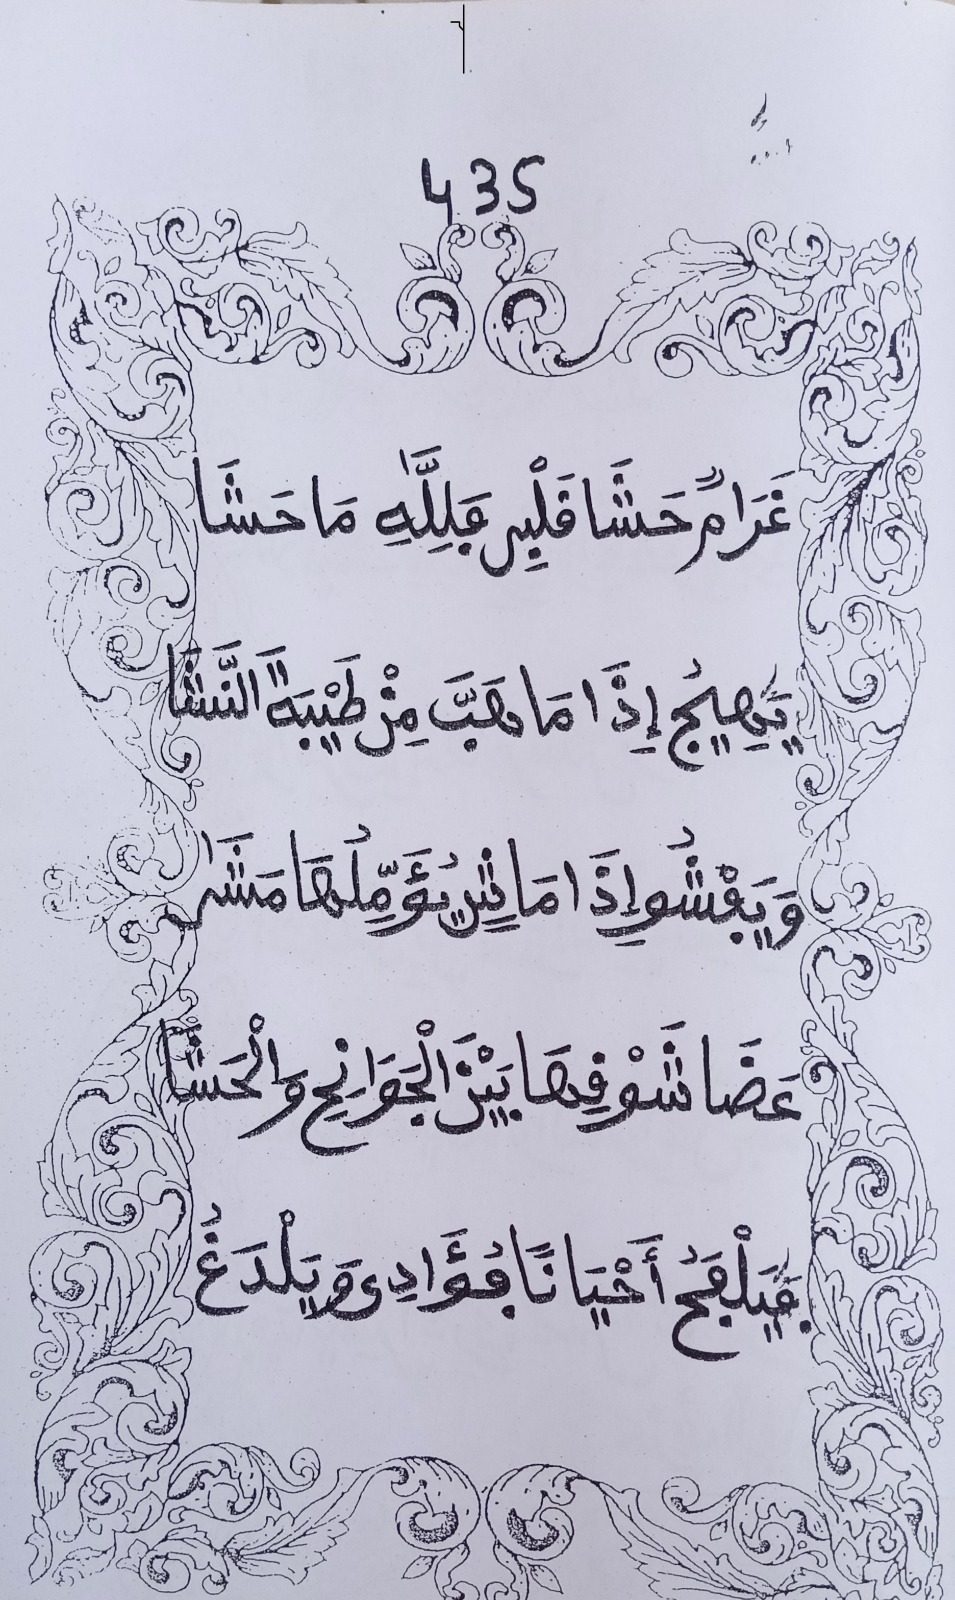 435
غَرَامٌ حَشَا قَلْبِي فَلِلَّهِ مَا حَشَا
يَهِيجُ إِذَا مَا هَبَّ مِنْ طَيْبَةَ النَّشَا
وَيَفْشُو إِذَا مَاشٍ يُؤَمِّلُهَا مَشَى
غَضَا شَوْقِهَا بَيْنَ الْجَوَانِحِ وَالْحَشَا
فَيَلْفَحُ أَحْيَانًا فُؤَادِي وَيَلْدَغُ